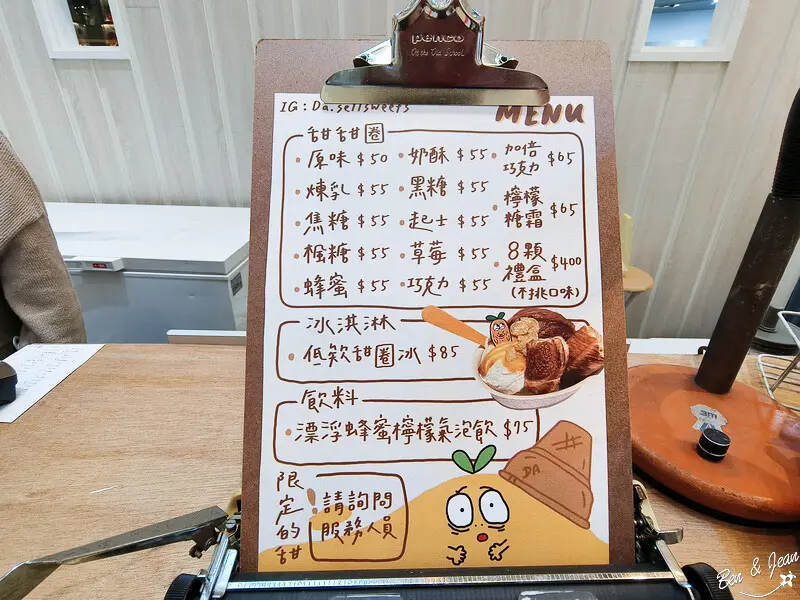 penco
On the Old School
IG : Da.sellsweets
MENU
甜甜圈
・原味 $50 ・奶酥 $55 ・加倍巧克力 $65
・煉乳 $55 ・黑糖 $55
・檸檬糖霜 $65
・焦糖 $55 ・起士 $55
・楓糖 $55 ・草莓 $55
・8顆禮盒 $400
・蜂蜜 $55 ・巧克力 $55
(不挑口味)
冰淇淋
・低欸甜圈冰 $85
飲料
・漂浮蜂蜜檸檬氣泡飲 $75
限定的甜
! 請詢問
服務人員
DA
Ben & Jean